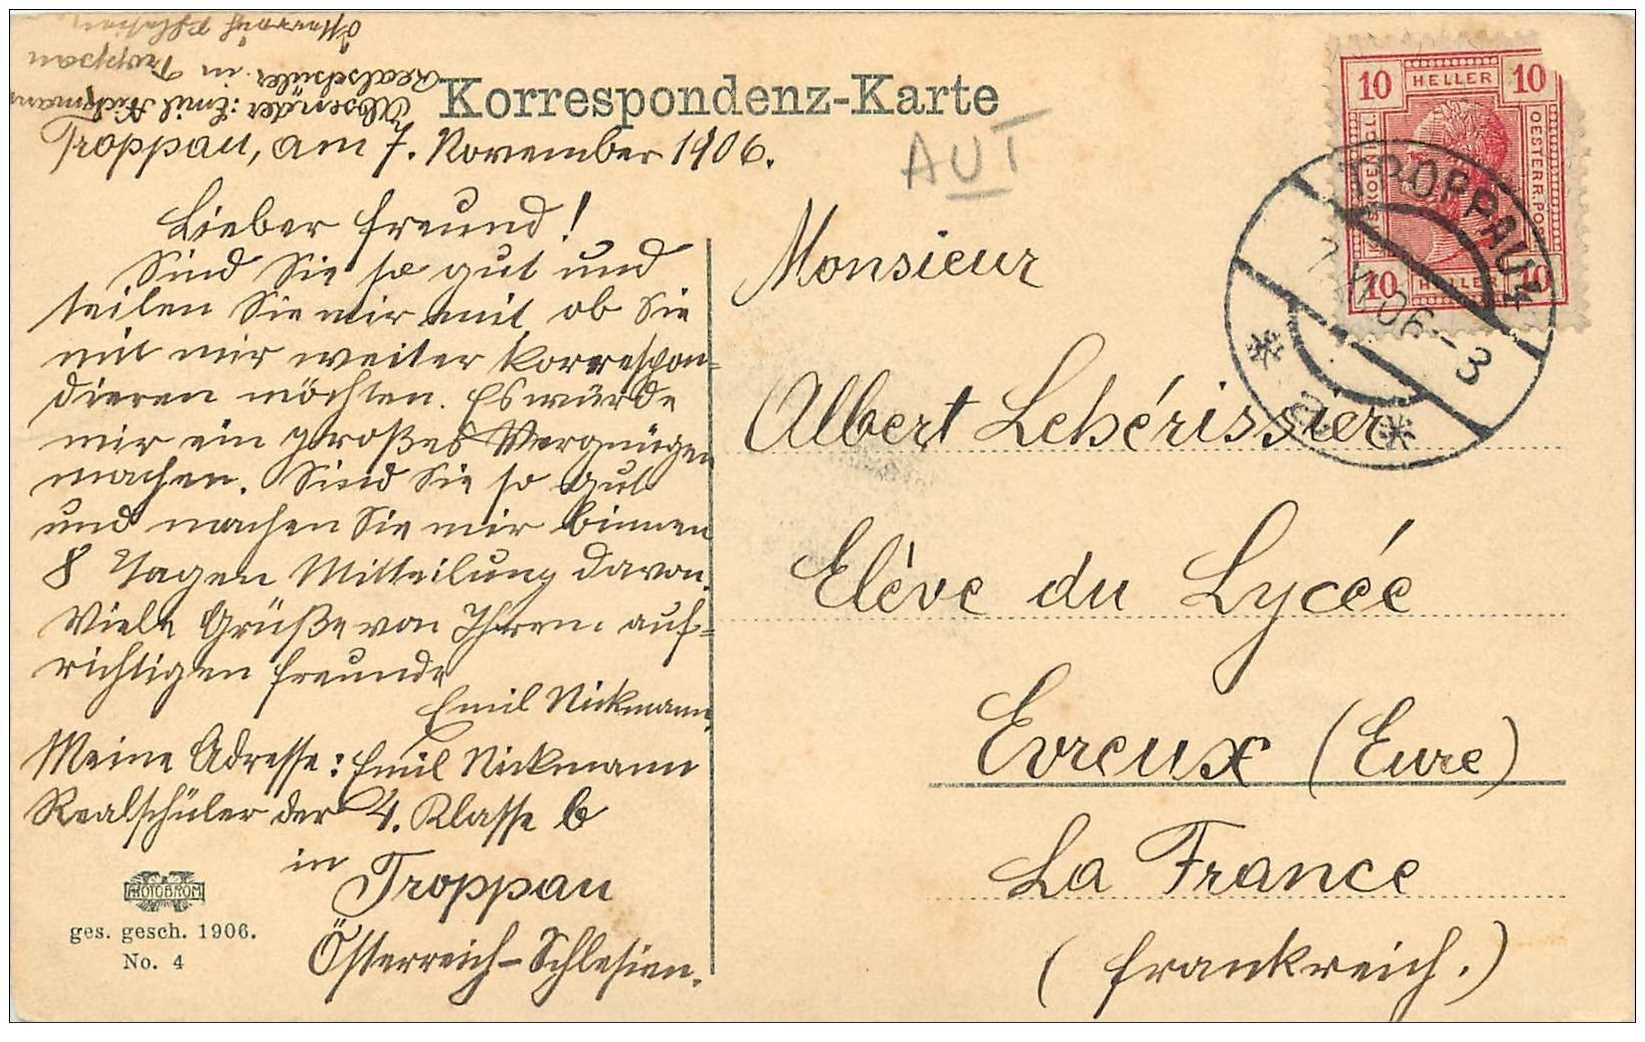 Absender: Emil Nickmann
Realschüler in Troppau
Österreich Schlesien
Korrespondenz-Karte
AUT
Troppau, am 7. November 1906.
Lieber Freund!
Sind Sie so gut und
teilen Sie mir mit, ob Sie
mit mir weiter korrespon=
dieren möchten. Es würde
mir ein großes Vergnügen
machen. Sind Sie so gut
und machen Sie mir binnen
8 Tagen Mitteilung davon.
Viele Grüße von Ihrem auf=
richtigen Freunde
Emil Nickmann.
Meine Adresse: Emil Nickmann
Realschüler der 4. Klasse b
in Troppau
Österreich-Schlesien.
ges. gesch. 1906.
No. 4
10 HELLER 10
OESTERR. POST
10 HELLER 10
TROPPAU 4
7 XI 06 - 3
Monsieur
Albert Lehérissier
Elève du Lycée
Evreux (Eure)
La France
(Frankreich.)